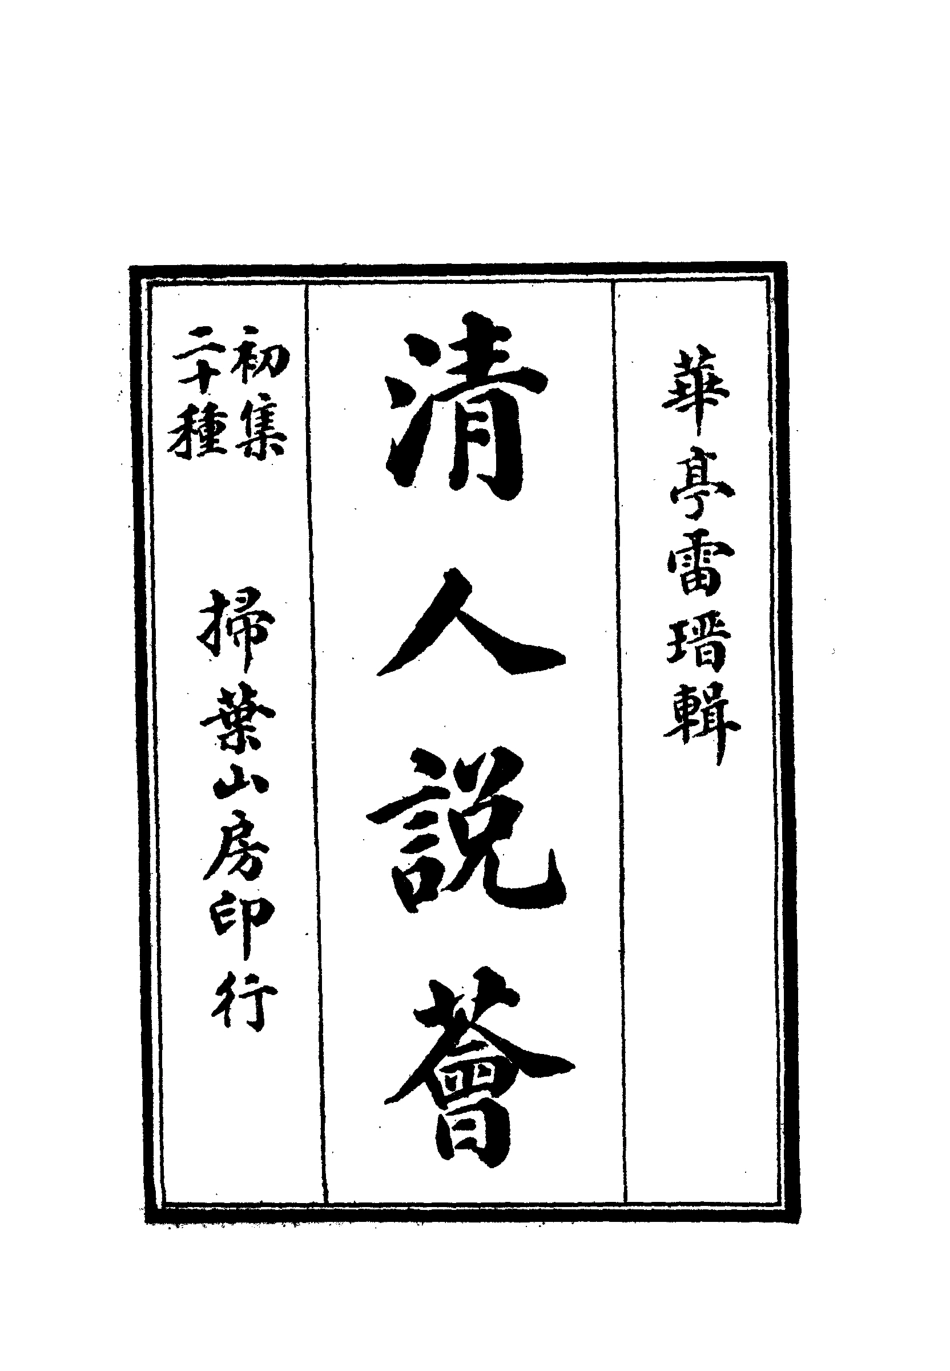 華亭雷瑨輯
清人說薈
初集
二十種
掃葉山房印行